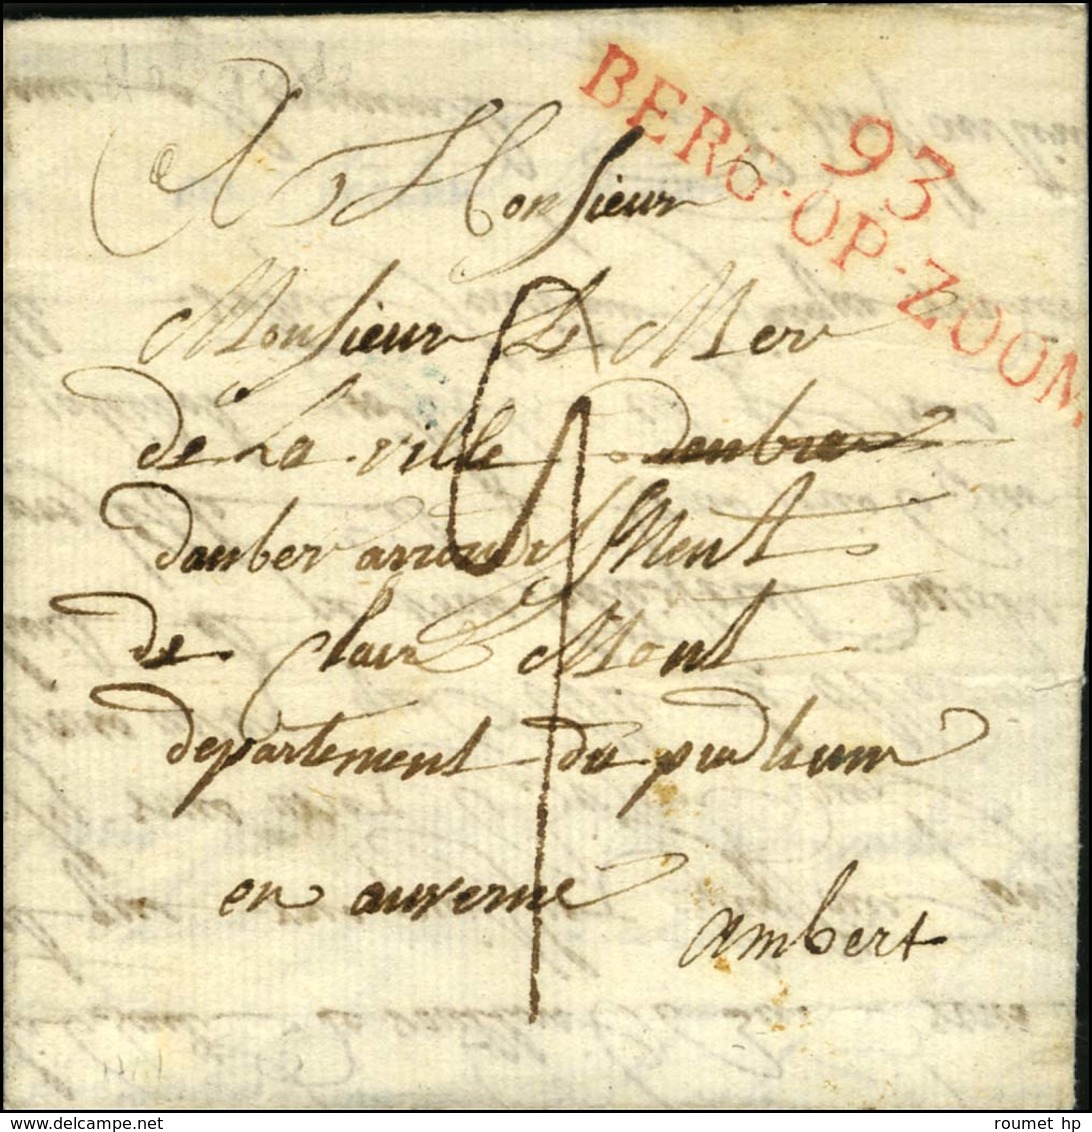 93
BERG-OP-ZOOM
A Monsieur
Monsieur Le Mer
de La ville denber
danber arrondisment
de clair Mont
departement du puidhum
en auverne
ambert
delcampe.net
roumet hp